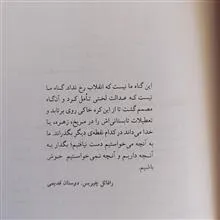 این گناه ما نیست که انقلاب رخ نداد. گناه ما
نیست که عدالت لختی تأمل کرد و آنگاه
مصمم گشت تا از این کره خاکی روی برتابد و
تعطیلات تابستانی‌اش را در مریخ، زهره، یا
خدا می‌داند در کدام نقطه‌ی دیگر بگذراند. ما
به آنچه می‌خواستیم دست نیافتیم؛ بگذار به
آنچه داریم و آنچه نمی‌خواستیم خوش
باشیم.
رافائل چیربس، دوستان قدیمی